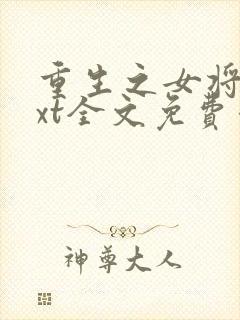 重生之女将
xt全文免费
神尊大人